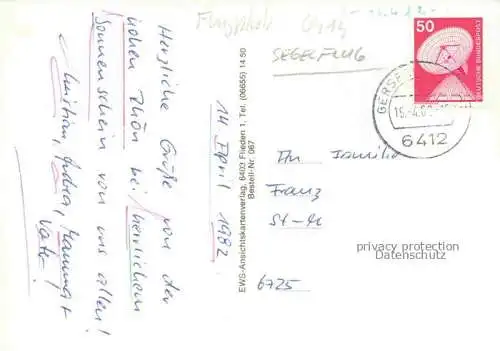 Flugplatz
SEGELFLUG
50
DEUTSCHE BUNDESPOST
GERSF
6412
14 April 1982
Herzliche Grüße von der
hohen Rhön bei herrlichem
Sonnenschein von uns allen!
Christian, Andrea, Mamma +
Vater!
EWS-Ansichtskartenverlag, 6403 Flieden 1, Tel. (06655) 14 50
Bestell-Nr. 067
An Familie
Franz
6725
privacy protection
Datenschutz